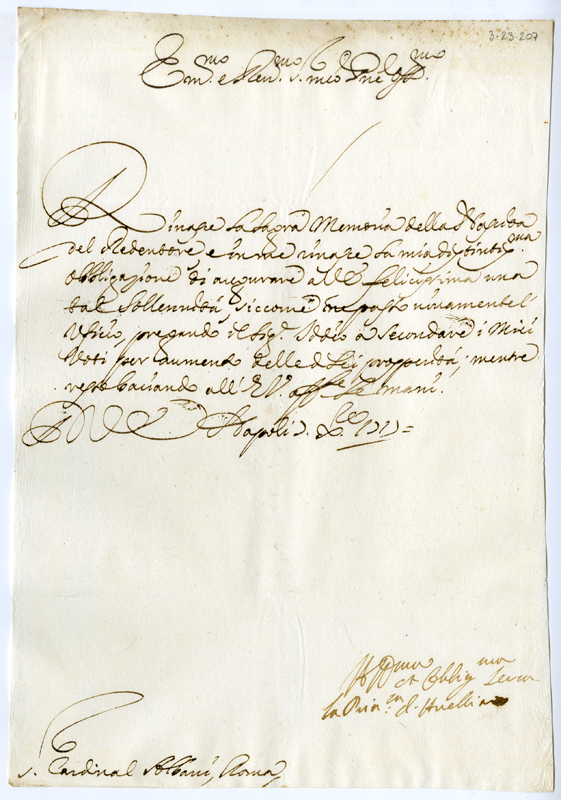 3-23-207
Em.mo e Rev.mo S. mio P.ne Oss.mo
Rinasce la sagra Memoria della Nascita
del Redentore e in me rinasce la mia distintis.ma
obbligazione di augurare all'E. felicissima una
tal sollennità, siccome ne passo vivamente l'
Uficio, pregando il Sig.r Iddio a secondare i Miei
Voti per aumento delle di Lei prosperità; mentre
resto baciando all'E.V. aff.te le mani.
Napoli
et Oblig.ma Serva
la Prin.
S. Cardinal Albani, Roma,